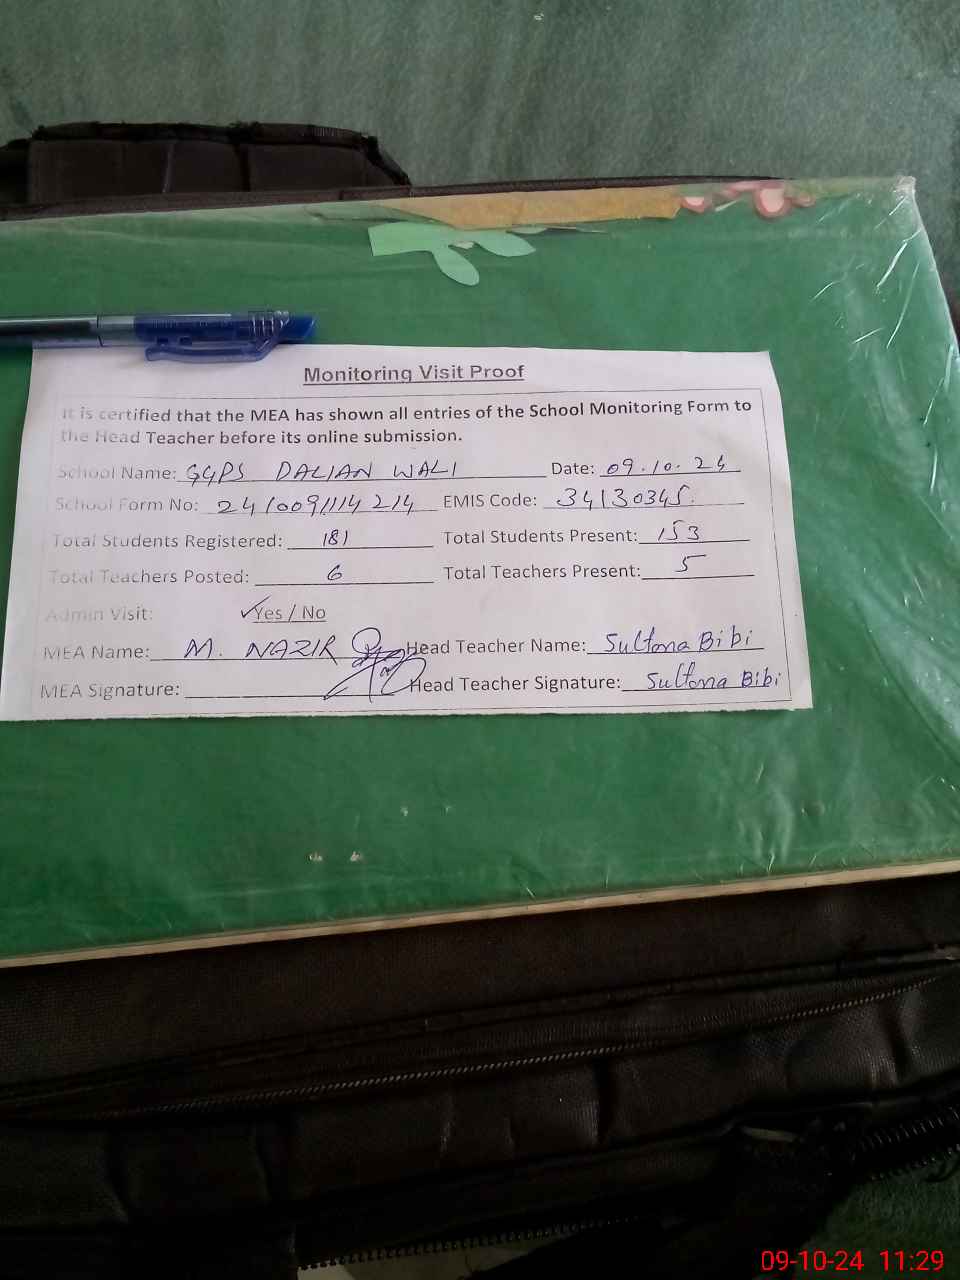 Monitoring Visit Proof
It is certified that the MEA has shown all entries of the School Monitoring Form to
the Head Teacher before its online submission.
School Name: GGPS DALIAN WALI Date: 09.10.24
School Form No: 2410091114214 EMIS Code: 34130345.
Total Students Registered: 181 Total Students Present: 153
Total Teachers Posted: 6 Total Teachers Present: 5
Admin Visit: ✓Yes / No
MEA Name: M. NAZIR Head Teacher Name: Sultana Bibi
MEA Signature: Head Teacher Signature: Sultana Bibi
09-10-24 11:29